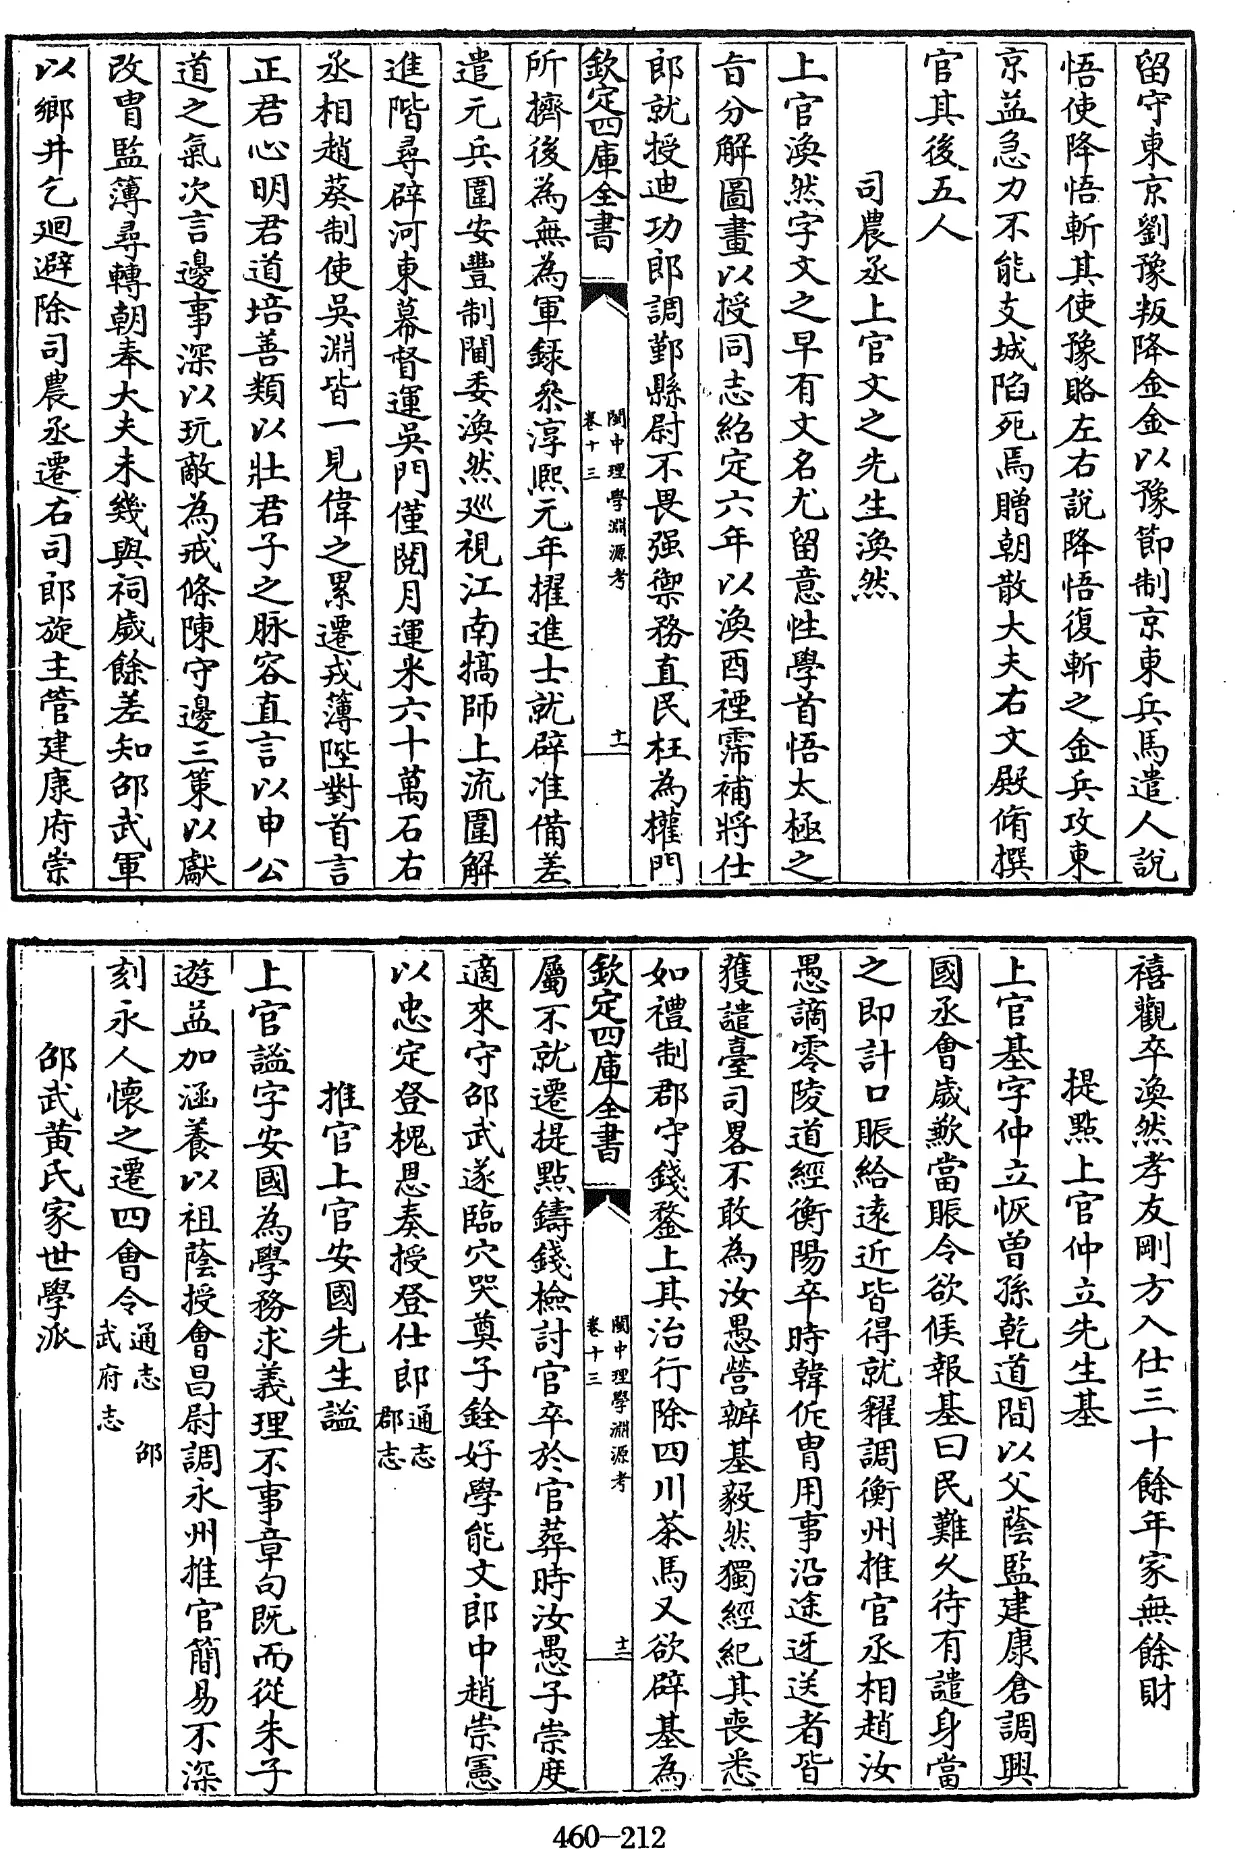 留守東京劉豫叛降金金以豫節制京東兵馬遣人說
悟使降悟斬其使豫賂左右說降悟復斬之金兵攻東
京益急力不能支城陷死焉贈朝散大夫右文殿脩撰
官其後五人
司農丞上官文之先生渙然
上官渙然字文之早有文名尤留意性學首悟太極之
旨分解圖畫以授同志紹定六年以渙酉禋霈補將仕
郎就授迪功郎調鄞縣尉不畏强禦務直民枉為權門
欽定四庫全書
閩中理學淵源考
卷十三
十一
所擠後為無為軍録叅淳熈元年擢進士就辟准備差
遣元兵圍安豐制閫委渙然廵視江南犒師上流圍解
進階尋辟河東幕督運吳門僅閱月運米六十萬石右
丞相趙葵制使吳淵皆一見偉之累遷戎簿陛對首言
正君心明君道培善類以壯君子之脉容直言以申公
道之氣次言邊事深以玩敵為戒條陳守邊三策以獻
改胄監簿尋轉朝奉大夫未幾與祠歲餘差知邵武軍
以鄉井乞迴避除司農丞遷右司郎旋主管建康府崇
禧觀卒渙然孝友剛方入仕三十餘年家無餘財
提點上官仲立先生基
上官基字仲立恢曾孫乾道間以父蔭監建康倉調興
國丞會歲歉當賑令欲俟報基曰民難久待有譴身當
之即計口賑給逺近皆得就糴調衡州推官丞相趙汝
愚謫零陵道經衡陽卒時韓侂胄用事沿途迓送者皆
獲譴臺司畧不敢為汝愚營辦基毅然獨經紀其喪悉
如禮制郡守錢鍪上其治行除四川茶馬又欲辟基為
欽定四庫全書
閩中理學淵源考
卷十三
十二
屬不就遷提點鑄錢檢討官卒於官葬時汝愚子崇度
適來守邵武遂臨穴哭奠子銓好學能文郎中趙崇憲
以忠定登槐恩奏授登仕郎通志
郡志
推官上官安國先生謐
上官謐字安國為學務求義理不事章句既而從朱子
遊益加涵養以祖蔭授會昌尉調永州推官簡易不深
刻永人懷之遷四會令通志 邵
武府志
邵武黃氏家世學派
460-212